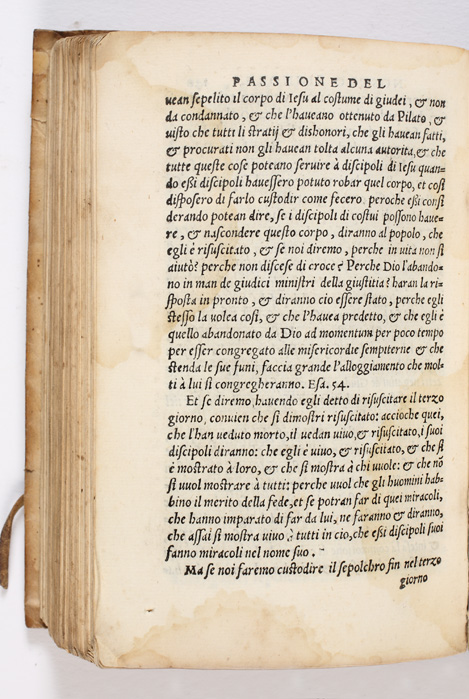 PASSIONE DEL
uean sepelito il corpo di Iesu al costume di giudei, & non
da condannato, & che l'haueano ottenuto da Pilato, &
uisto che tutti li stratij & dishonori, che gli hauean fatti,
& procurati non gli hauean tolta alcuna autorita, & che
tutte queste cose poteano seruire à discipoli di Iesu quan-
do eßi discipoli hauessero potuto robar quel corpo, et cosi
disposero di farlo custodir come fecero. peroche eßi consi
derando potean dire, se i discipoli di costui possono haue-
re, & nascondere questo corpo, diranno al popolo, che
egli è risuscitato, & se noi diremo, perche in uita non si
aiutò? perche non discese di croce? Perche Dio l'abando-
no in man de giudici ministri della giustitia? haran la ri-
sposta in pronto, & diranno cio essere stato, perche egli
stesso la uolea cosi, & che l'hauea predetto, & che egli è
quello abandonato da Dio ad momentum per poco tempo
per esser congregato alle misericordie sempiterne & che
stenda le sue funi, faccia grande l'alloggiamento che mol-
ti à lui si congregheranno. Esa. 54.
Et se diremo, hauendo egli detto di risuscitare il terzo
giorno, conuien che si dimostri risuscitato: accioche quei,
che l'han ueduto morto, il uedan uiuo, & risuscitato, i suoi
discipoli diranno: che egli è uiuo, & risuscitato, & che si
è mostrato à loro, & che si mostra à chi uuole: & che nō
si uuol mostrare à tutti: perche uuol che gli huomini hab-
bino il merito della fede, et se potran far di quei miracoli,
che hanno imparato di far da lui, ne faranno & diranno,
che assai si mostra uiuo à tutti in cio, che eßi discipoli suoi
fanno miracoli nel nome suo.
Ma se noi faremo custodire il sepolchro fin nel terzo
giorno